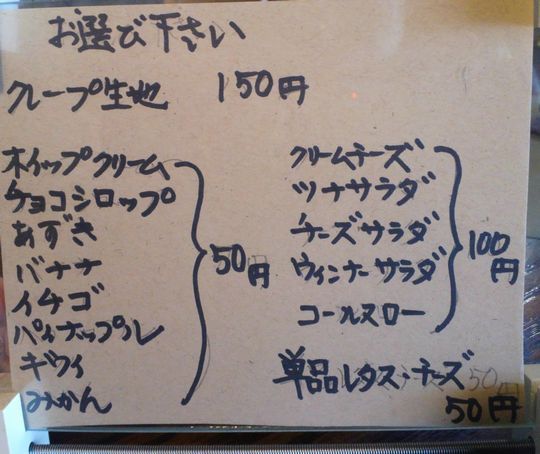 お選び下さい
クレープ生地 150円
ホイップクリーム
チョコシロップ
あずき
バナナ
イチゴ
パイナップル
キウイ
みかん
50円
クリームチーズ
ツナサラダ
チーズサラダ
ウィンナーサラダ
コールスロー
100円
単品レタス・チーズ
50円